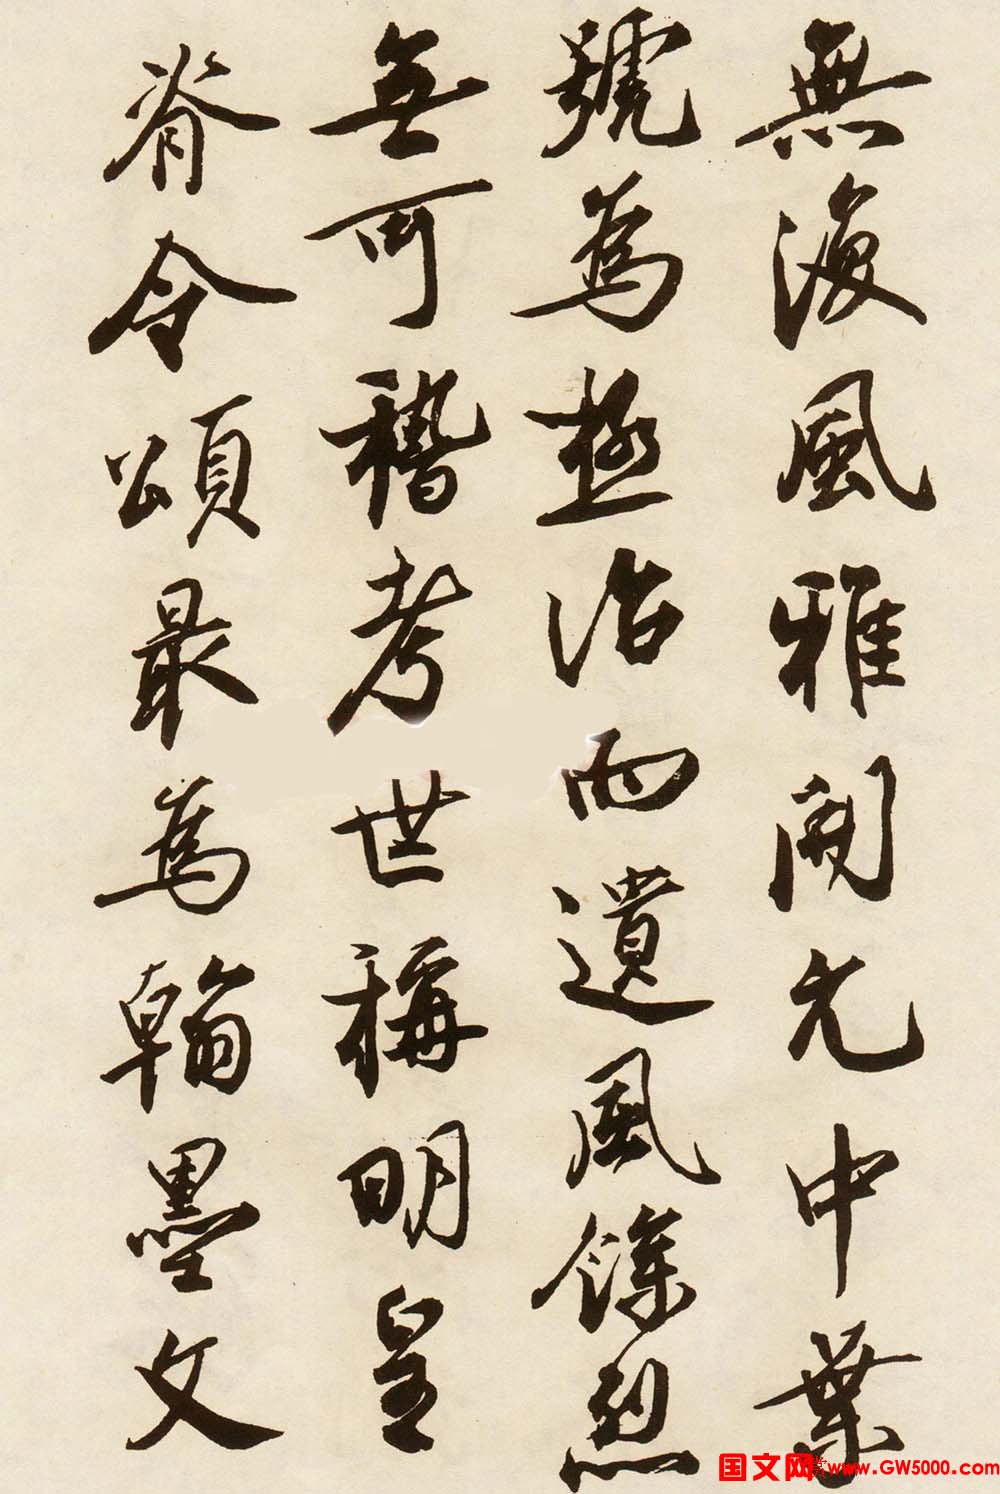 無復風雅開元中葉
號為極治而遺風餘烈
無可稽考世稱明皇
脊令頌最為翰墨文
国文网 www.GW5000.com